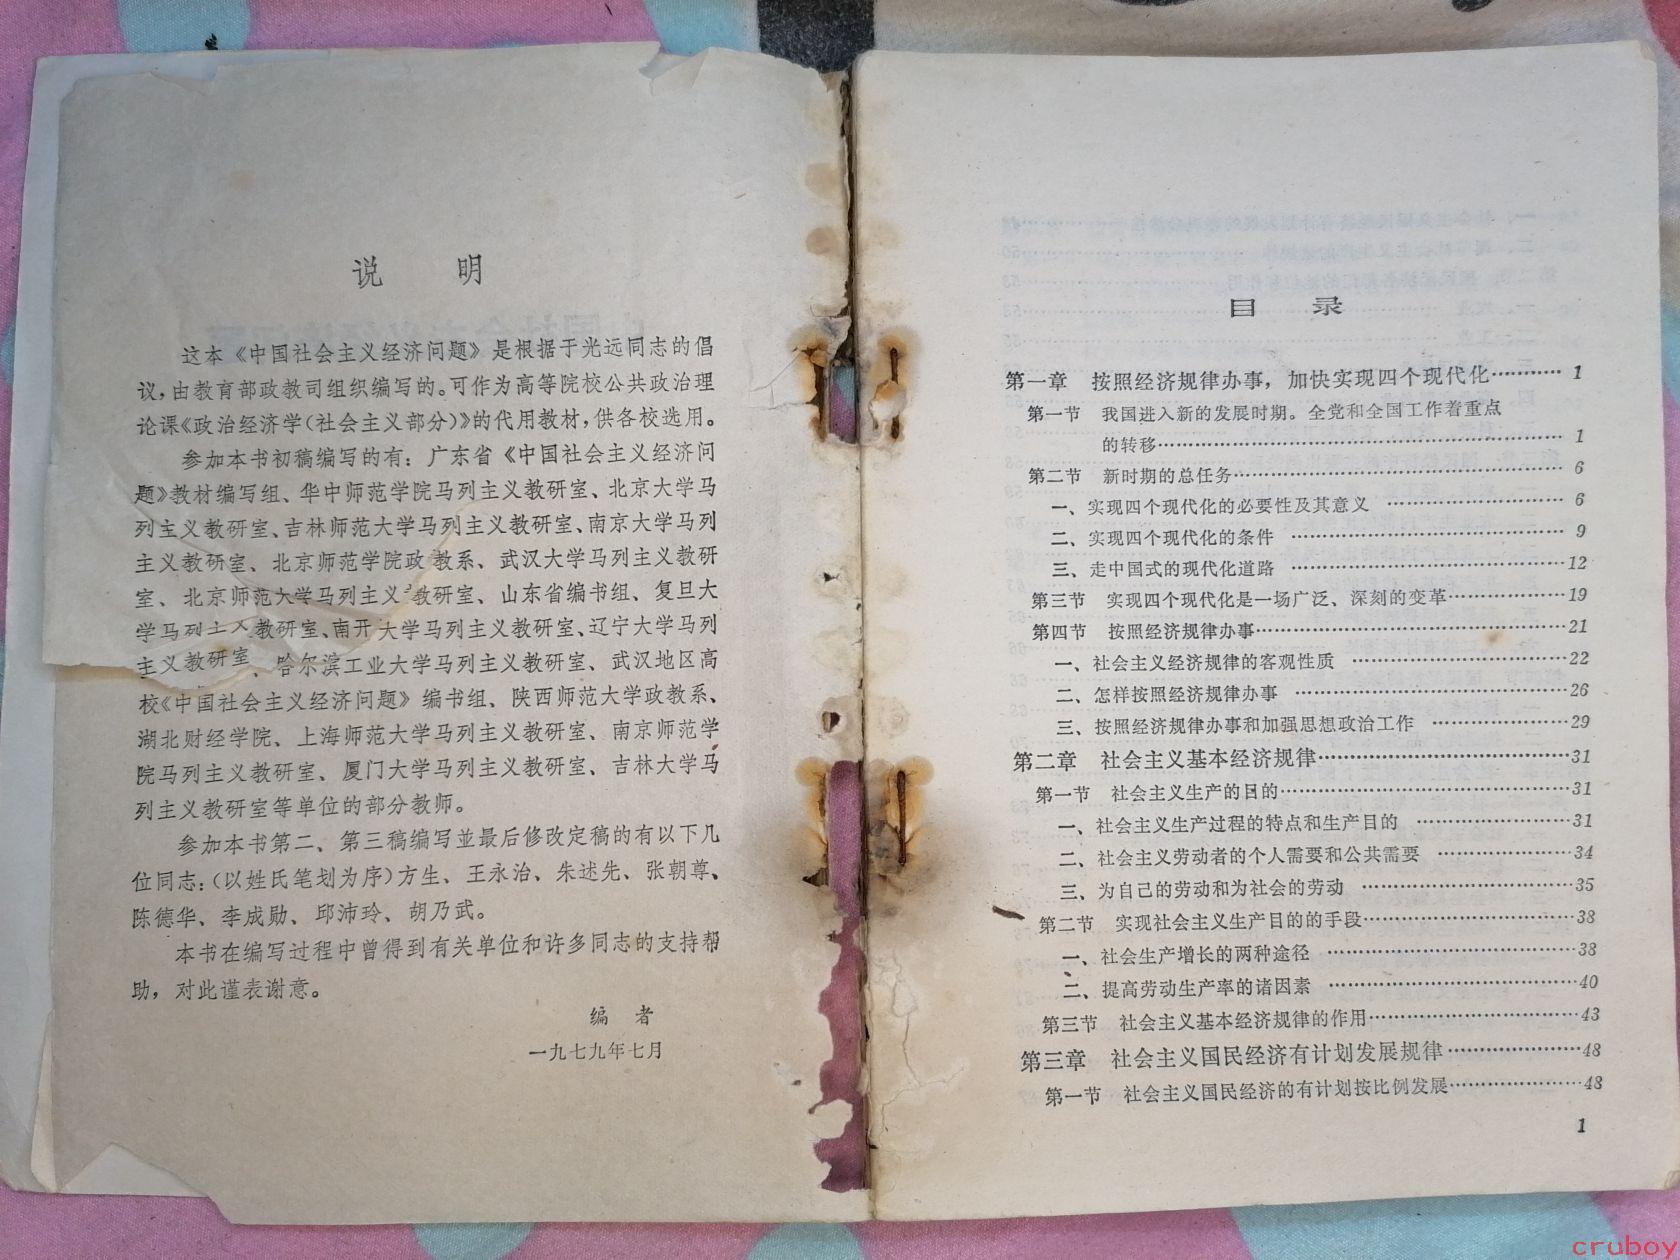 说 明
这本《中国社会主义经济问题》是根据于光远同志的倡
议，由教育部政教司组织编写的。可作为高等院校公共政治理
论课《政治经济学（社会主义部分）》的代用教材，供各校选用。
参加本书初稿编写的有：广东省《中国社会主义经济问
题》教材编写组、华中师范学院马列主义教研室、北京大学马
列主义教研室、吉林师范大学马列主义教研室、南京大学马列
主义教研室、北京师范学院政教系、武汉大学马列主义教研
室、北京师范大学马列主义教研室、山东省编书组、复旦大
学马列主义教研室、南开大学马列主义教研室、辽宁大学马列
主义教研室、哈尔滨工业大学马列主义教研室、武汉地区高
校《中国社会主义经济问题》编书组、陕西师范大学政教系、
湖北财经学院、上海师范大学马列主义教研室、南京师范学
院马列主义教研室、厦门大学马列主义教研室、吉林大学马
列主义教研室等单位的部分教师。
参加本书第二、第三稿编写並最后修改定稿的有以下几
位同志：（以姓氏笔划为序）方生、王永治、朱述先、张朝尊、
陈德华、李成勋、邱沛玲、胡乃武。
本书在编写过程中曾得到有关单位和许多同志的支持帮
助，对此谨表谢意。
编 者
一九七九年七月
目 录
第一章 按照经济规律办事，加快实现四个现代化………… 1
第一节 我国进入新的发展时期。全党和全国工作着重点
的转移………………………………………………… 1
第二节 新时期的总任务…………………………………… 6
一、实现四个现代化的必要性及其意义 ……………… 6
二、实现四个现代化的条件 …………………………… 9
三、走中国式的现代化道路 ……………………………12
第三节 实现四个现代化是一场广泛、深刻的变革…………19
第四节 按照经济规律办事…………………………………21
一、社会主义经济规律的客观性质 ……………………22
二、怎样按照经济规律办事 ……………………………26
三、按照经济规律办事和加强思想政治工作 …………29
第二章 社会主义基本经济规律……………………………31
第一节 社会主义生产的目的………………………………31
一、社会主义生产过程的特点和生产目的 ……………31
二、社会主义劳动者的个人需要和公共需要 …………34
三、为自己的劳动和为社会的劳动 ……………………35
第二节 实现社会主义生产目的的手段……………………38
一、社会生产增长的两种途径 …………………………38
二、提高劳动生产率的诸因素 …………………………40
第三节 社会主义基本经济规律的作用……………………43
第三章 社会主义国民经济有计划发展规律………………48
第一节 社会主义国民经济的有计划按比例发展…………48
1
cruboy